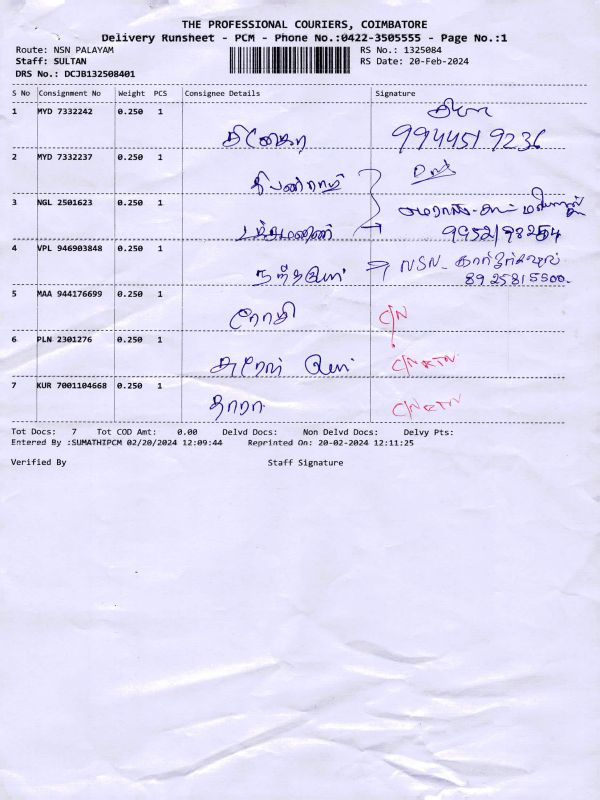 THE PROFESSIONAL COURIERS, COIMBATORE
Delivery Runsheet - PCM - Phone No.:0422-3505555 - Page No.:1
Route: NSN PALAYAM RS No.: 1325084
Staff: SULTAN RS Date: 20-Feb-2024
DRS No.: DCJB132508401
S No Consignment No Weight PCS Consignee Details Signature
1 MYD 7332242 0.250 1
994451 9236
2 MYD 7332237 0.250 1
3 NGL 2501623 0.250 1
4 VPL 946903848 0.250 1
NSN-
89 25815500.
5 MAA 944176699 0.250 1
ரோஜி C/N
6 PLN 2301276 0.250 1
C/N RTN
7 KUR 7001104668 0.250 1
தாரா C/N RTN
Tot Docs: 7 Tot COD Amt: 0.00 Delvd Docs: Non Delvd Docs: Delvy Pts:
Entered By :SUMATHIPCM 02/20/2024 12:09:44 Reprinted On: 20-02-2024 12:11:25
Verified By Staff Signature